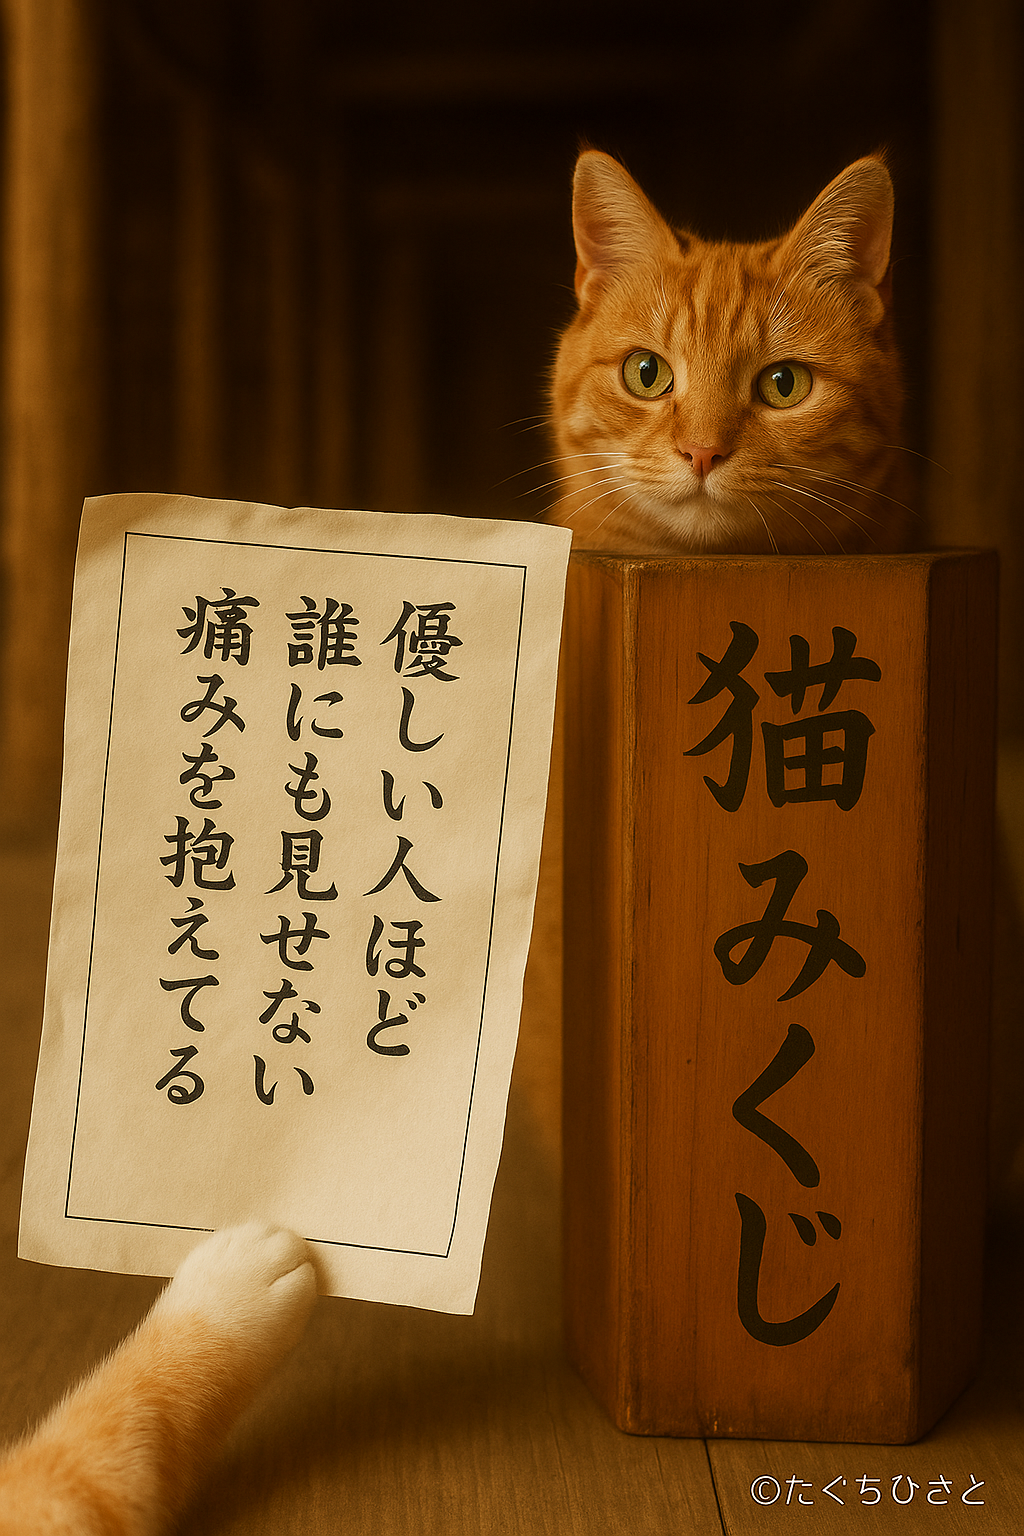 優しい人ほど
誰にも見せない
痛みを抱えてる
猫みくじ
©たぐちひさと